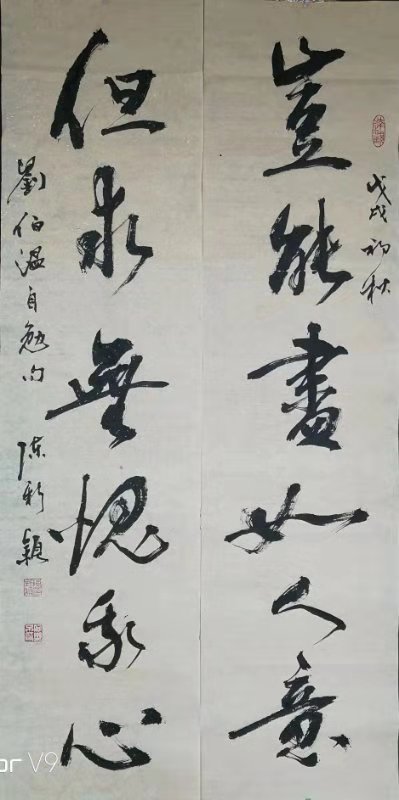 戊戌初秋
豈能盡如人意
但求無愧我心
劉伯溫自勉句 陈新穎
or V9